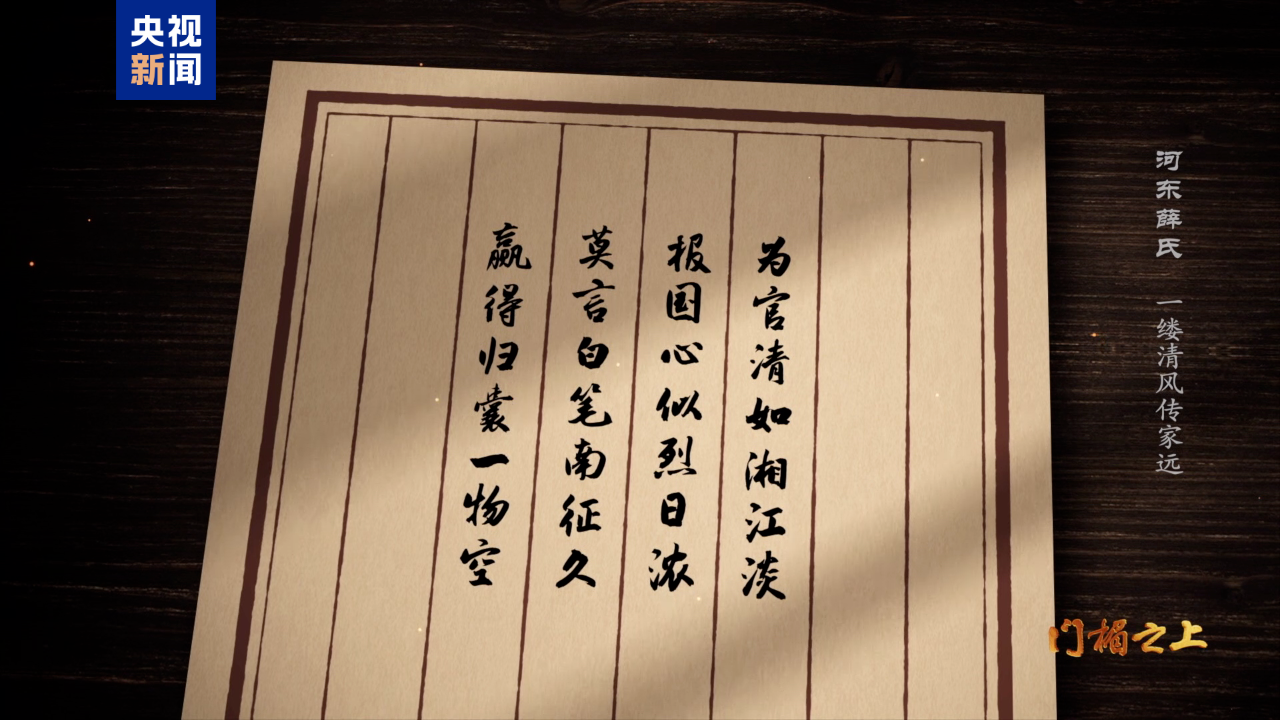 央视
新闻
河东薛氏 一缕清风传家远
为官清如湘江淡
报国心似烈日浓
莫言白笔南征久
赢得归囊一物空
门楣之上